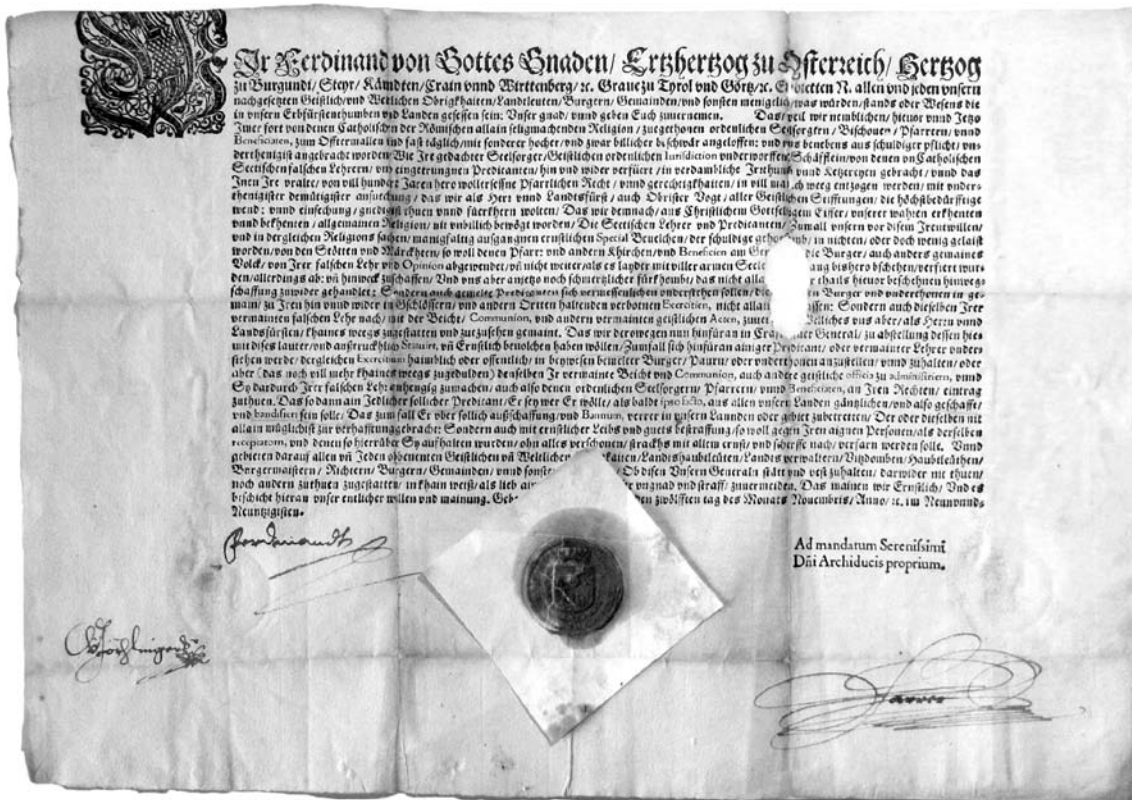 WIr Ferdinand von Gottes Gnaden/ Ertzhertzog zu Osterreich/ Hertzog
zu Burgundi/ Steyr/ Kärndten/ Crain vnnd Wirttenberg/ ꝛc. Graue zu Tyrol vnd Görtz/ ꝛc. Entbietten N. allen vnd jeden vnsern
nachgesetzten Geistlich/ vnd Weltlichen Obrigkhaiten/ Landtleuten/ Burgern/ Gemainden/ vnd sonsten meniglich/ was würden/ stands oder Wesens die
in vnsern Erbfürstenthumben vnd Landen gesessen sein: Vnser gnad/ vnnd geben Euch zuuernemen. Das/ weil wir nemblichen/ hieuor vnnd Jetzo
Jmer fort von denen Catholischen der Römischen allain seligmachenden Religion/ zuegethonen ordenlichen Seelsorgern/ Bischouen/ Pfarrern/ vnnd
Beneficiaten, zum Offtermallen vnd fast täglich/ mit sonderer hocher/ vnd zwar billicher beschwär angeloffen: vnd vns benebens aus schuldiger pflicht/ vn-
derthenigist angebracht worden/ Wie Jre gedachter Seelsorger/ Geistlichen ordenlichen Iurisdiction vnderworffne Schäfflein/ von denen vnCatholischen
Sectischen falschen Lehrern/ vnd eingetrungnen Predicanten/ hin vnd wider verfüert/ in verdambliche Jrrthumb vnnd Ketzereyen gebracht/ vnnd das
Jnen Jre vralte/ von vill hundert Jaren hero wolersessne Pfarrlichen Recht/ vnnd gerechtigkhaiten/ in vill weeg entzogen werden/ mit vnder-
thenigister demütigister ansuechung/ das wir als Herr vnnd Landsfürst/ auch Obrister Vogt/ aller Geistlichen Stifftungen/ die höchstbedürfftige
wend: vnnd einsechung/ gnedigist thuen vnnd füerkhern wolten/ Das wir demnach/ aus Christlichem Gottseligem Eiffer/ vnserer wahren erkhenten
vnnd bekhenten/ allgemainen Religion/ nit vnbillich bewögt worden/ Die Sectischen Lehrer vnd Predicanten/ Zumall vnsern vor disem Jrentwillen/
vnd in dergleichen Religions sachen/ manigfaltig ausgangnen ernstlichen Special Beuelchen/ der schuldige in nichten/ oder doch wenig gelaist
worden/ von den Stötten vnd Märckhten/ so woll denen Pfarr: vnd andern Khirchen/ vnd Beneficien am die Burger/ auch anders gemaines
Volck/ von Jrer falschen Lehr vnd Opinion abgewendet/ vñ nicht weiter/ als es layder mit viller armen Seelen bishero bschehen/ verfiert wur-
den/ allerdings ab: vñ hinweck zuschaffen/ Vnd vns aber anjetzo noch schmertzlicher fürkhombt/ das nicht allain thails hieuor beschehnen hinweg-
schaffung zuwider gehandlet: Sondern auch gemelte Predicanten sich vermessenlichen vndersteheen sollen/ die Burger vnd vnderthonen in ge-
main/ zu Jren hin vnnd wider in Gschlössern/ vnd andern Orthen haltenden verbotnen Exercitien, nicht allain Sondern auch dieselben Jrer
vermainten falschen Lehr nach/ mit der Beicht/ Communion, vnd andern vermainten geistlichen Acten, Welliches vns aber/ als Herrn vnnd
Landsfürsten/ khaines weegs zugestatten vnd zuezusehen gemaint. Das wir derowegen nun hinfüran in Crafft General/ zu abstellung dessen hie-
mit dises lauter/ vnd außtruckhlich Statuirt, vñ Ernstlich beuolchen haben wöllen/ Zumfall sich hinfüran ainiger Predicant/ oder vermainter Lehrer vnder-
stehen werde/ dergleichen Exercitium haimblich oder offentlich/ in beywesen bemelter Burger/ Paurn/ oder vnderthonen anzustellen/ vnnd zuhalten/ oder
aber (das noch vill mehr khaines weegs zugedulden) denselben Jr vermainte Beicht vnd Communion, auch andere geistliche officia zu administriern, vnnd
Sy dardurch Jrer falschen Lehr anhengig zumachen/ auch also denen ordenlichen Seelsorgern/ Pfarrern/ vnnd Beneficiaten, an Jren Rechten/ eintrag
zuthuen. Das sodann ain Jedlicher sollicher Predicant/ Er sey wer Er wölle/ als baldt ipso facto, aus allen vnsern Landen gäntzlichen/ vnd also geschafft/
vnd bandisiert sein solle/ Das zum fall Er vber sollich außschaffung/ vnd Bannum, verrer in vnsern Lannden oder gebiet zubetretten/ Der oder dieselben nit
allain müglichist zur verhafftung gebracht: Sondern auch mit ernstlicher Leibs vnd guets bestraffung/ so woll gegen Jren aignen Personen/ als derselben
receptatorn, vnd denen so hierrüber Sy aufhalten wurden/ ohn alles verschonen/ strackhs mit allem ernst/ vnd scherffe nach/ verfarn werden solle. Vnnd
gebieten darauf allen vñ Jeden obbenenten Geistlichen vñ Weltlichen Landtshaubtleüten/ Landts verwaltern/ Vitzdomben/ Haubtleüthen/
Burgermaistern/ Richtern/ Burgern/ Gemainden/ vnnd sonsten Ob disen Vnsern Generaln stätt vnd vest zuhalten/ darwider nit thuen/
noch andern zuthuen zugestatten/ in khain weiß/ als lieb vngnad vnd straff/ zuuermeiden. Das mainen wir Ernstlich/ Vnd es
beschicht hieran vnser entlicher willen vnd mainung. Geben den zwölfften tag des Monats Nouembris/ Anno/ ꝛc. im Neunvnnd-
Neuntzigisten.
Ferdinandt
Ad mandatum Serenissimi
Dñi Archiducis proprium.